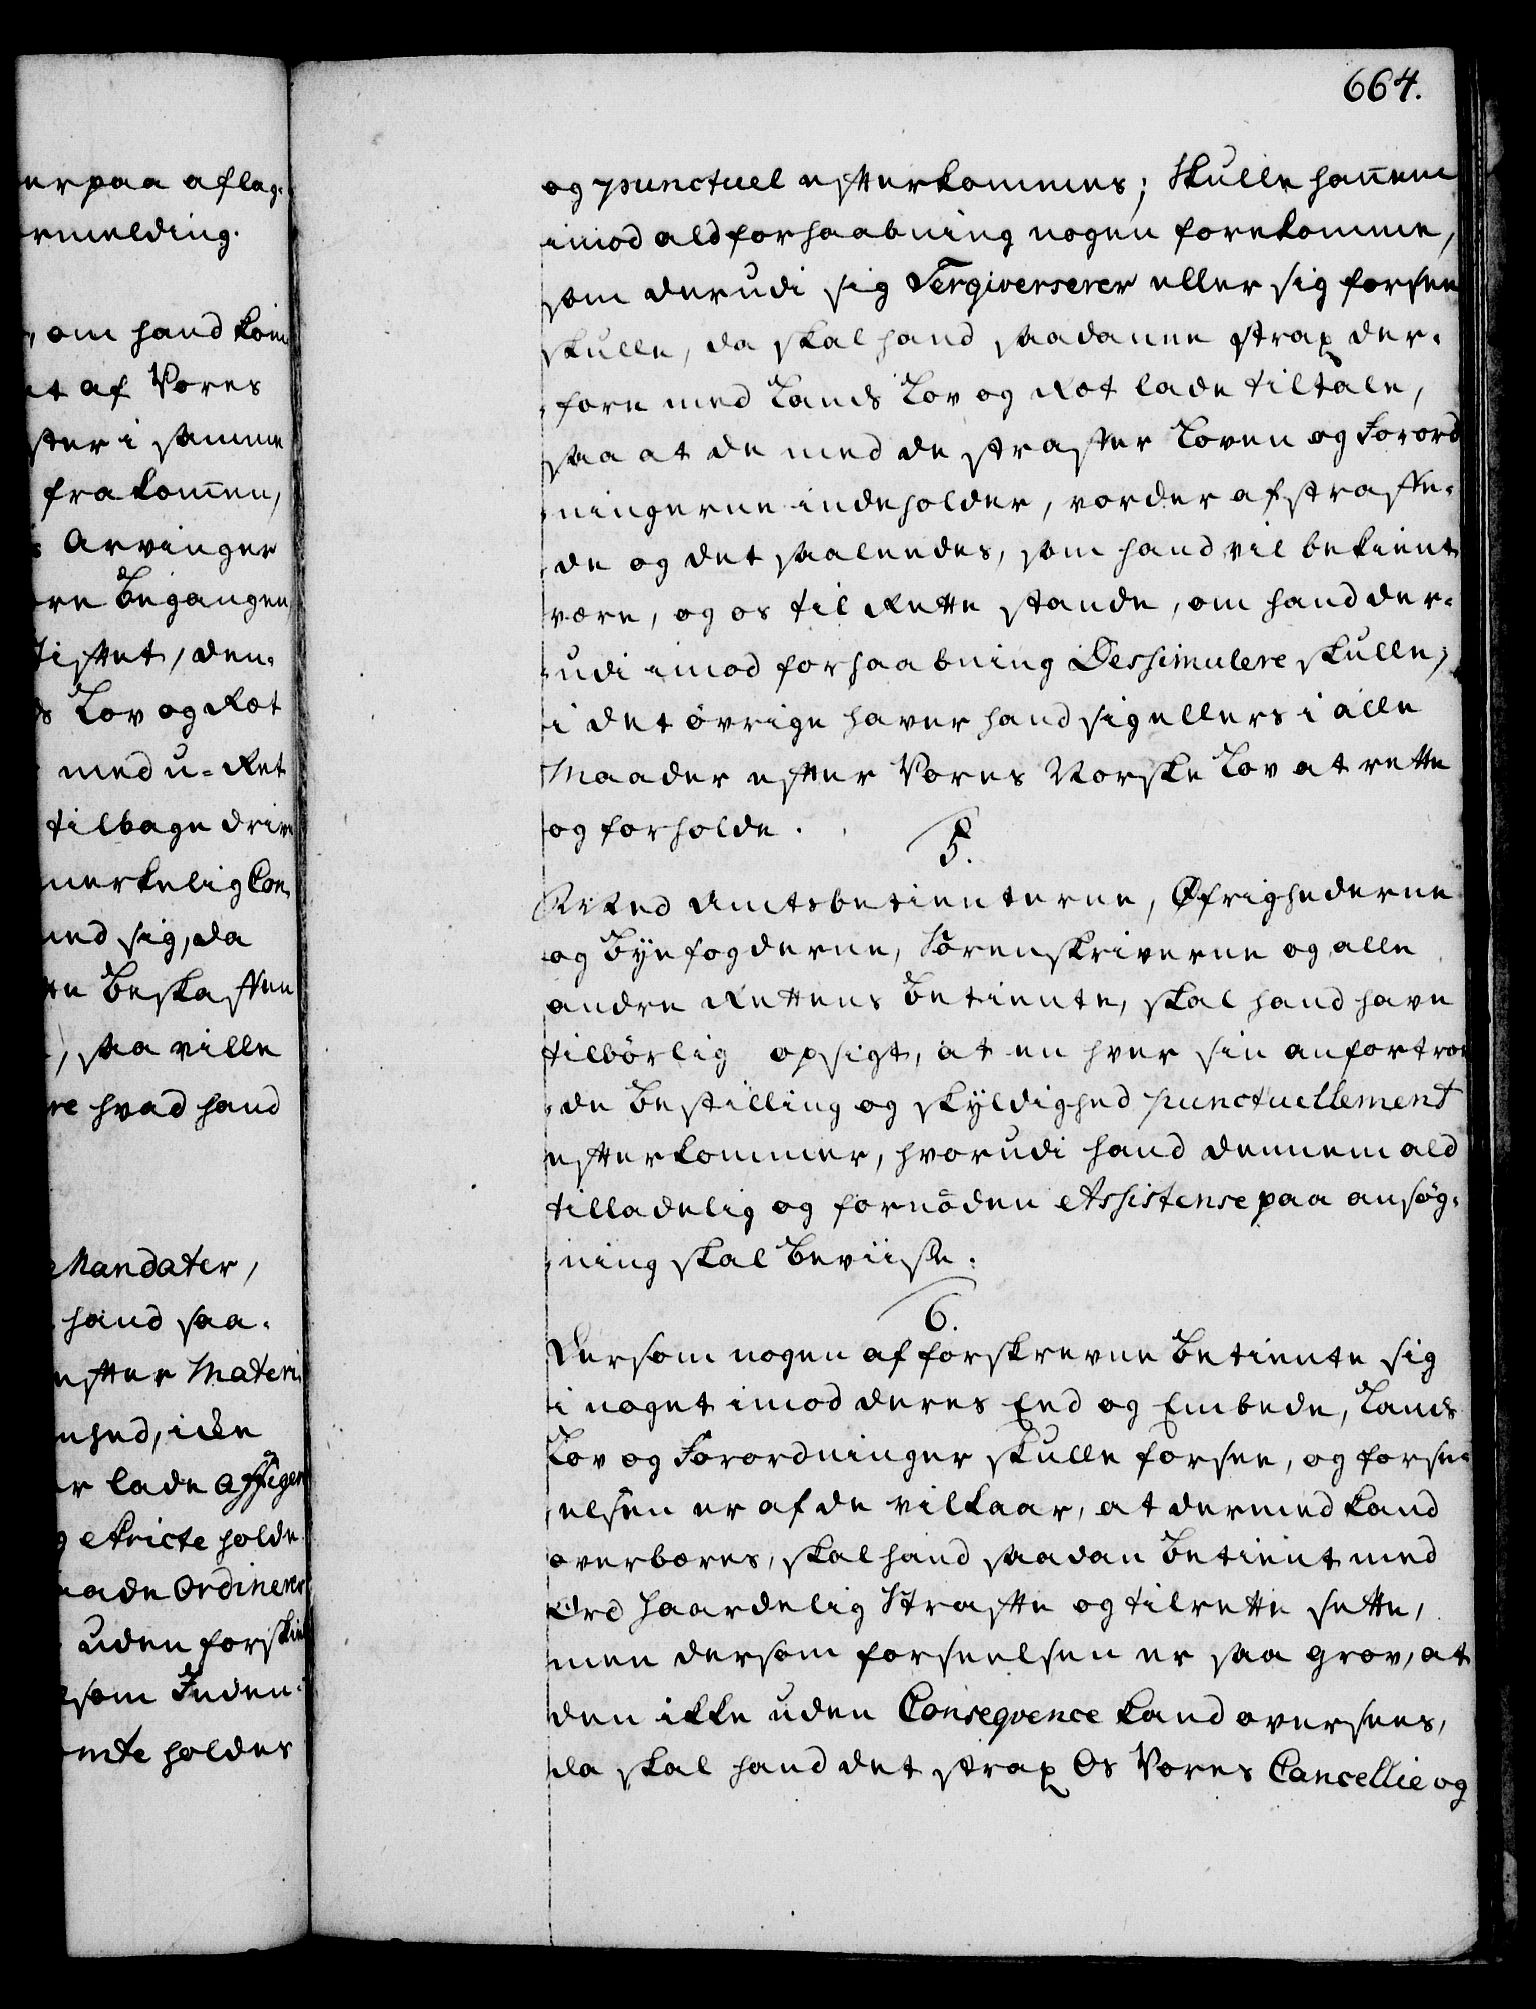 664.
erpaa aflag-
rmelding.
om hand kom
t af Vores
ster i samme
fra komen,
s Arvinger
ere begangen
tistet, den-
ds Lov og Ret
med u-Ret
tilbage driv
merkelig Con-
med sig, da
te beskaffen
, saa ville
re hvad hand
Mandater,
hand saa-
efter Materi
nhed, icke
r lade affiger
g stricte holde
ade Ordinerer
uden forskiel
som Inden-
emte holdes
og punctuel efterkommes; Skulle hañem
imod ald forhaabning nogen forekomme,
som derudi sig Tergiverserer eller sig forsee
skulle, da skal hand saadanne strax der-
fore med Lands Lov og Ret lade tiltale,
saa at de med de straffer Loven og Forord
ningerne indeholder, vorder afstraffe-
de og det saaleedes, som hand vil bekient
være, og os til Rette stande, om hand der-
udi imod forhaabning Dessimulere skulle;
i det øvrige haver hand sig ellers i alle
Maader efter Vores Norske Lov at rette
og forholde.
5.
Med Amtsbetienterne, Øfrighederne
og Byefogderne, Sorenskriverne og alle
andre Rettens Betiente, skal hand have
tilbørlig opsigt, at en hver sin anfortroe
de Bestilling og skyldighed punctuellement
efterkommer, hvorudi hand dennem ald
tilladelig og fornøden Assistense paa ansøg-
ning skal beviise.
6.
Dersom nogen af forskrevne Betiente sig
i noget imod deres Eed og Embede, Lands
Lov og Forordninger skulle forsee, og forse-
elsen er af de vilkaar, at dermed kand
overbæres, skal hand saadan Betient med
Ord haardelig Straffe og tilrette sette,
men dersom forseelsen er saa grov, at
den ikke uden Conseqvence kand oversees,
da skal hand det strax Os Vores Cancellie og